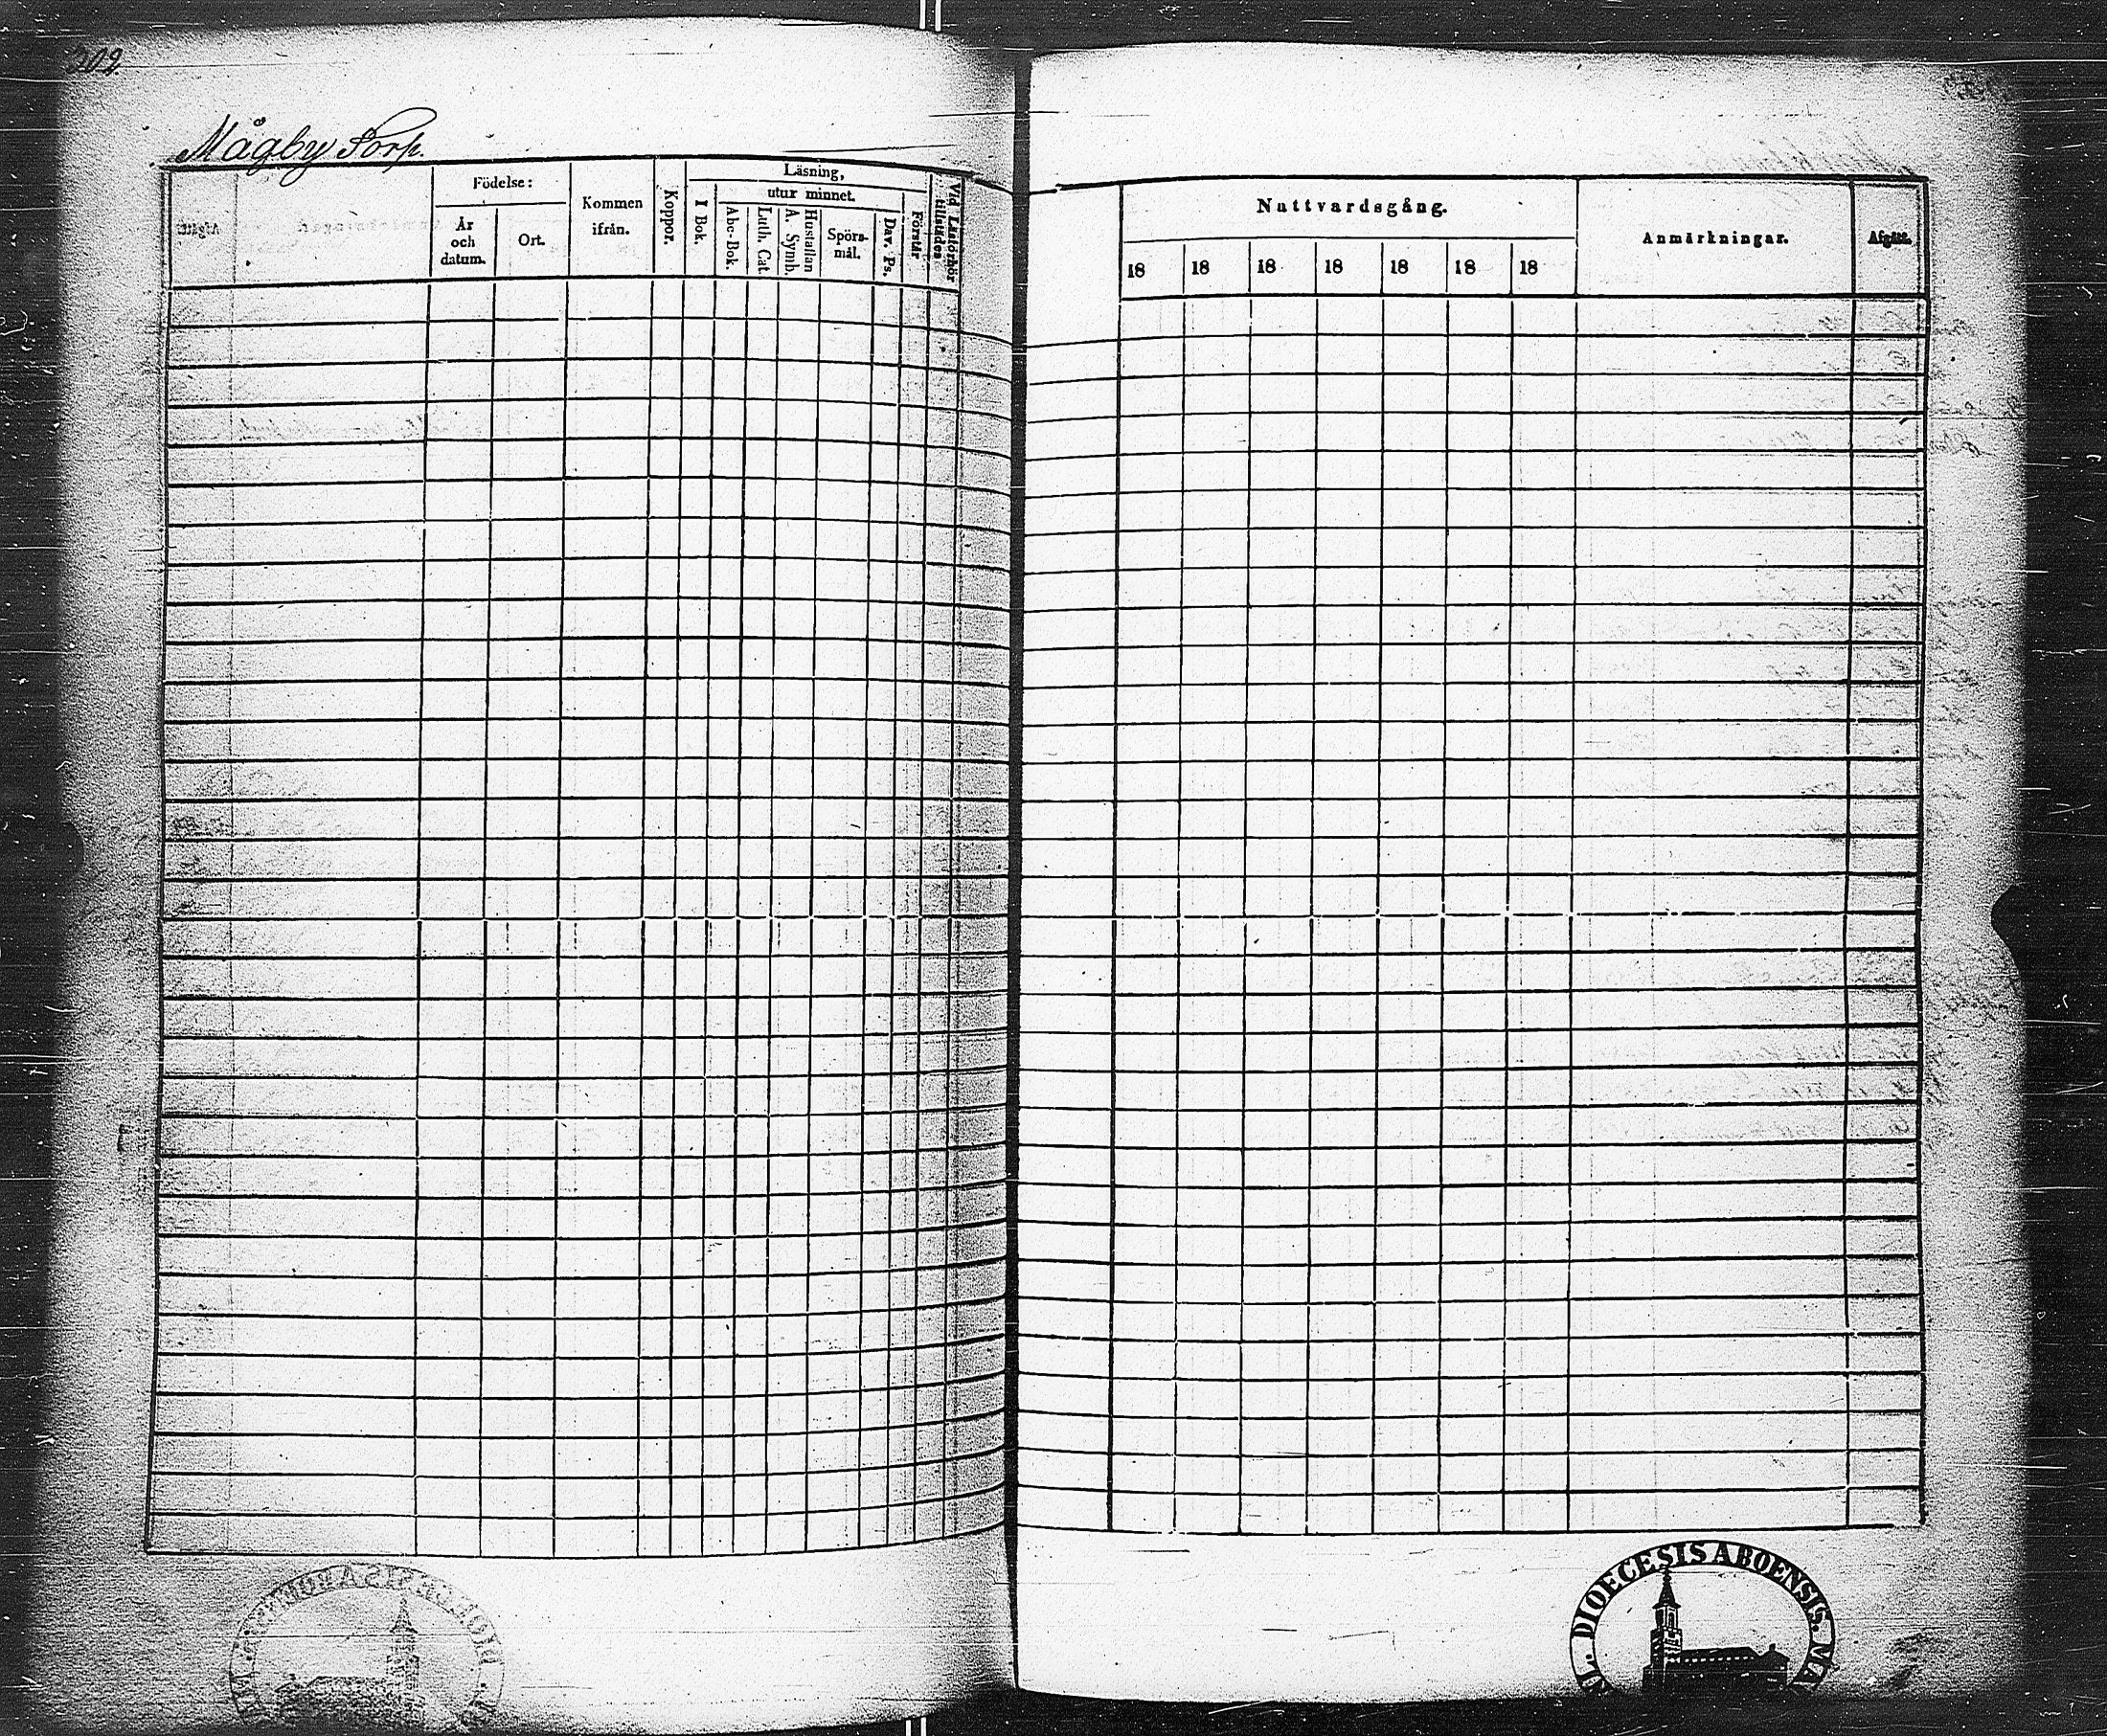 202.
Mågby Torp.
Födelse:
År
och
datum.
Ort.
Kommen
ifrån.
Koppor.
Läsning,
I Bok.
utur minnet.
Abc-Bok.
Luth. Cat.
Hustaflan
A. Symb.
Spörs-
mål.
Dav. Ps.
Förstår
Vid Läsförhör
tillstädes
Nattvardsgång.
18 18 18 18 18 18 18
Anmärkningar.
Afgått.
DIOECESIS ABOENSIS.